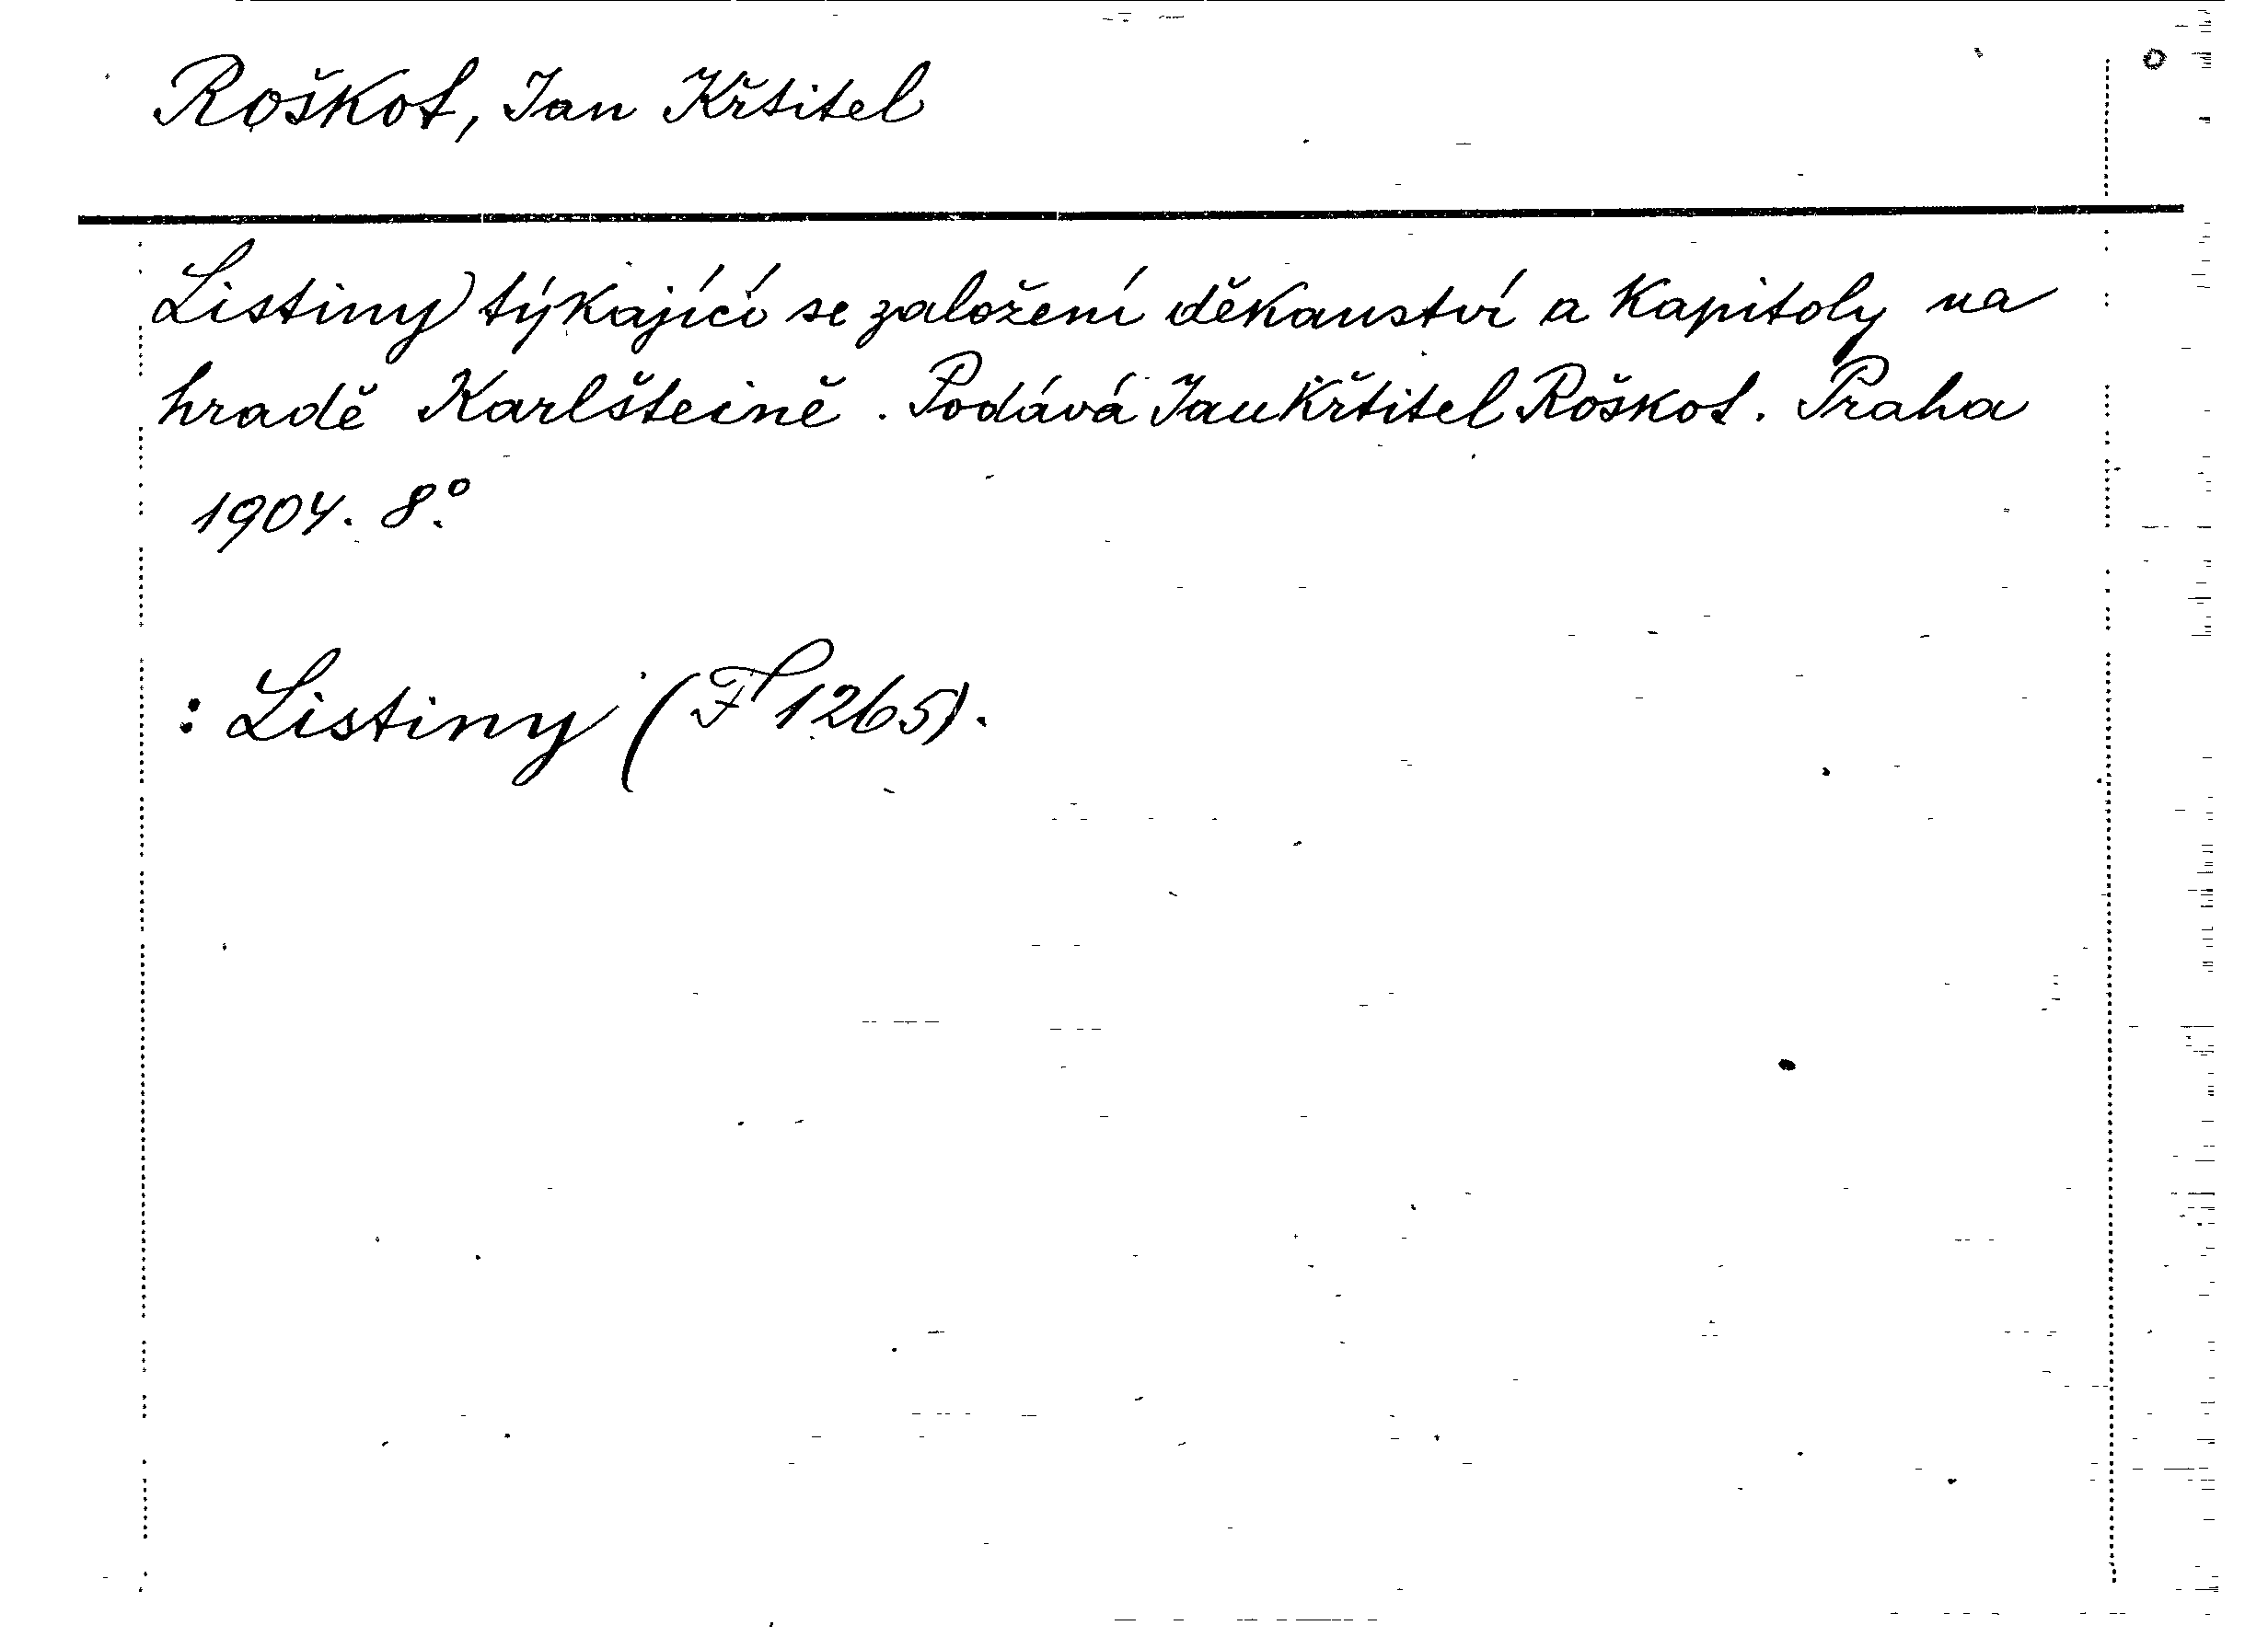 Roškot, Jan Křtitel
Listiny týkající se založení děkanství a Kapitoly na
hradě Karlšteině. Podává Jan Křtitel Roškot. Praha
1904. 8°.
: Listiny (F 1265).